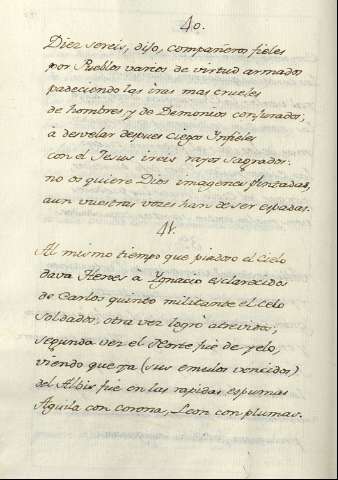 40.
Diez sereis, dijo, compañeros fieles
por Pueblos varios de virtud armados
padeciendo las iras mas crueles
de hombres y de Demonios conjurados,
à desvelar despues ciegos Ynfieles
con el Jesus ireis rayos sagrados:
no os quiere Dios imagenes pintadas,
aun vuestras vozes han de ser espadas.
41.
Al mismo tiempo que piadoso el Cielo
dava Heroes à Ygnacio esclarecidos
de Carlos quinto militante el celo
soldados, otra vez logrò atrevidos,
segunda vez el Norte fue de yelo,
viendo que ya (sus emulos vencidos)
del Albis fue en las rapidas espumas
Aguila con corona, Leon con plumas.